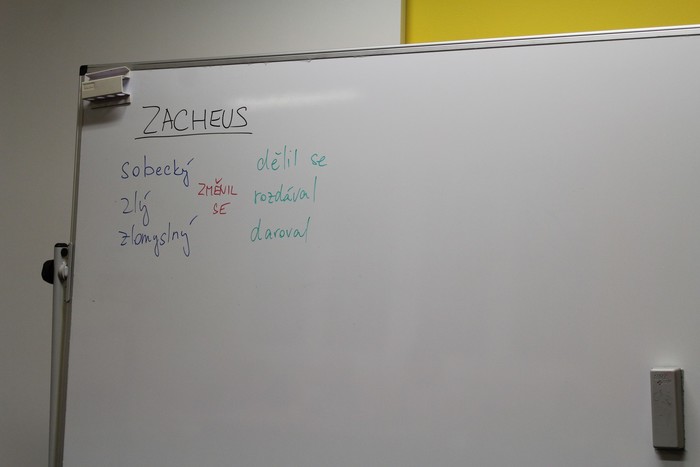 ZACHEUS
sobecký
zlý
zlomyslný
ZMĚNIL
SE
dělil se
rozdával
daroval